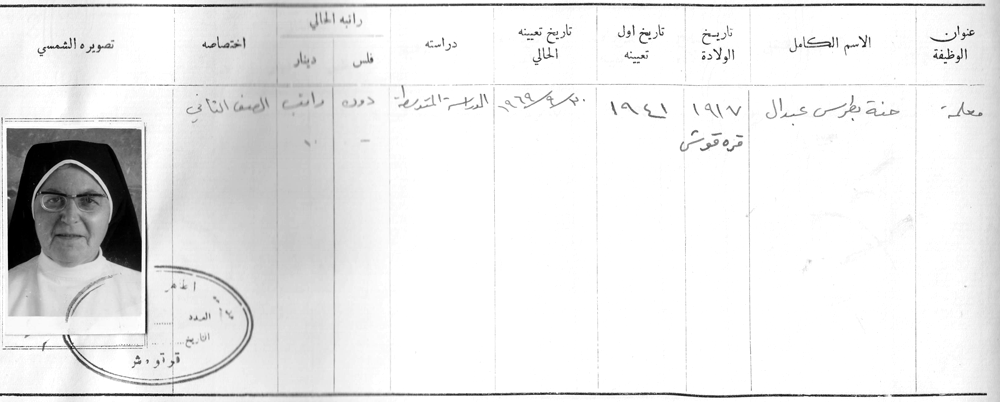 عنوان الوظيفة
الاسم الكامل
تاريخ الولادة
تاريخ اول تعيينه
تاريخ تعيينه الحالي
دراسته
راتبه الحالي
فلس
دينار
اختصاصه
تصويره الشمسي
معلمة
حنة بطرس عبدال
١٩١٧
قره قوش
١٩٤١
٣٠/٩/١٩٦٩
الدراسة المتوسطة
دون
راتب
الصف الثاني
العدد
التاريخ